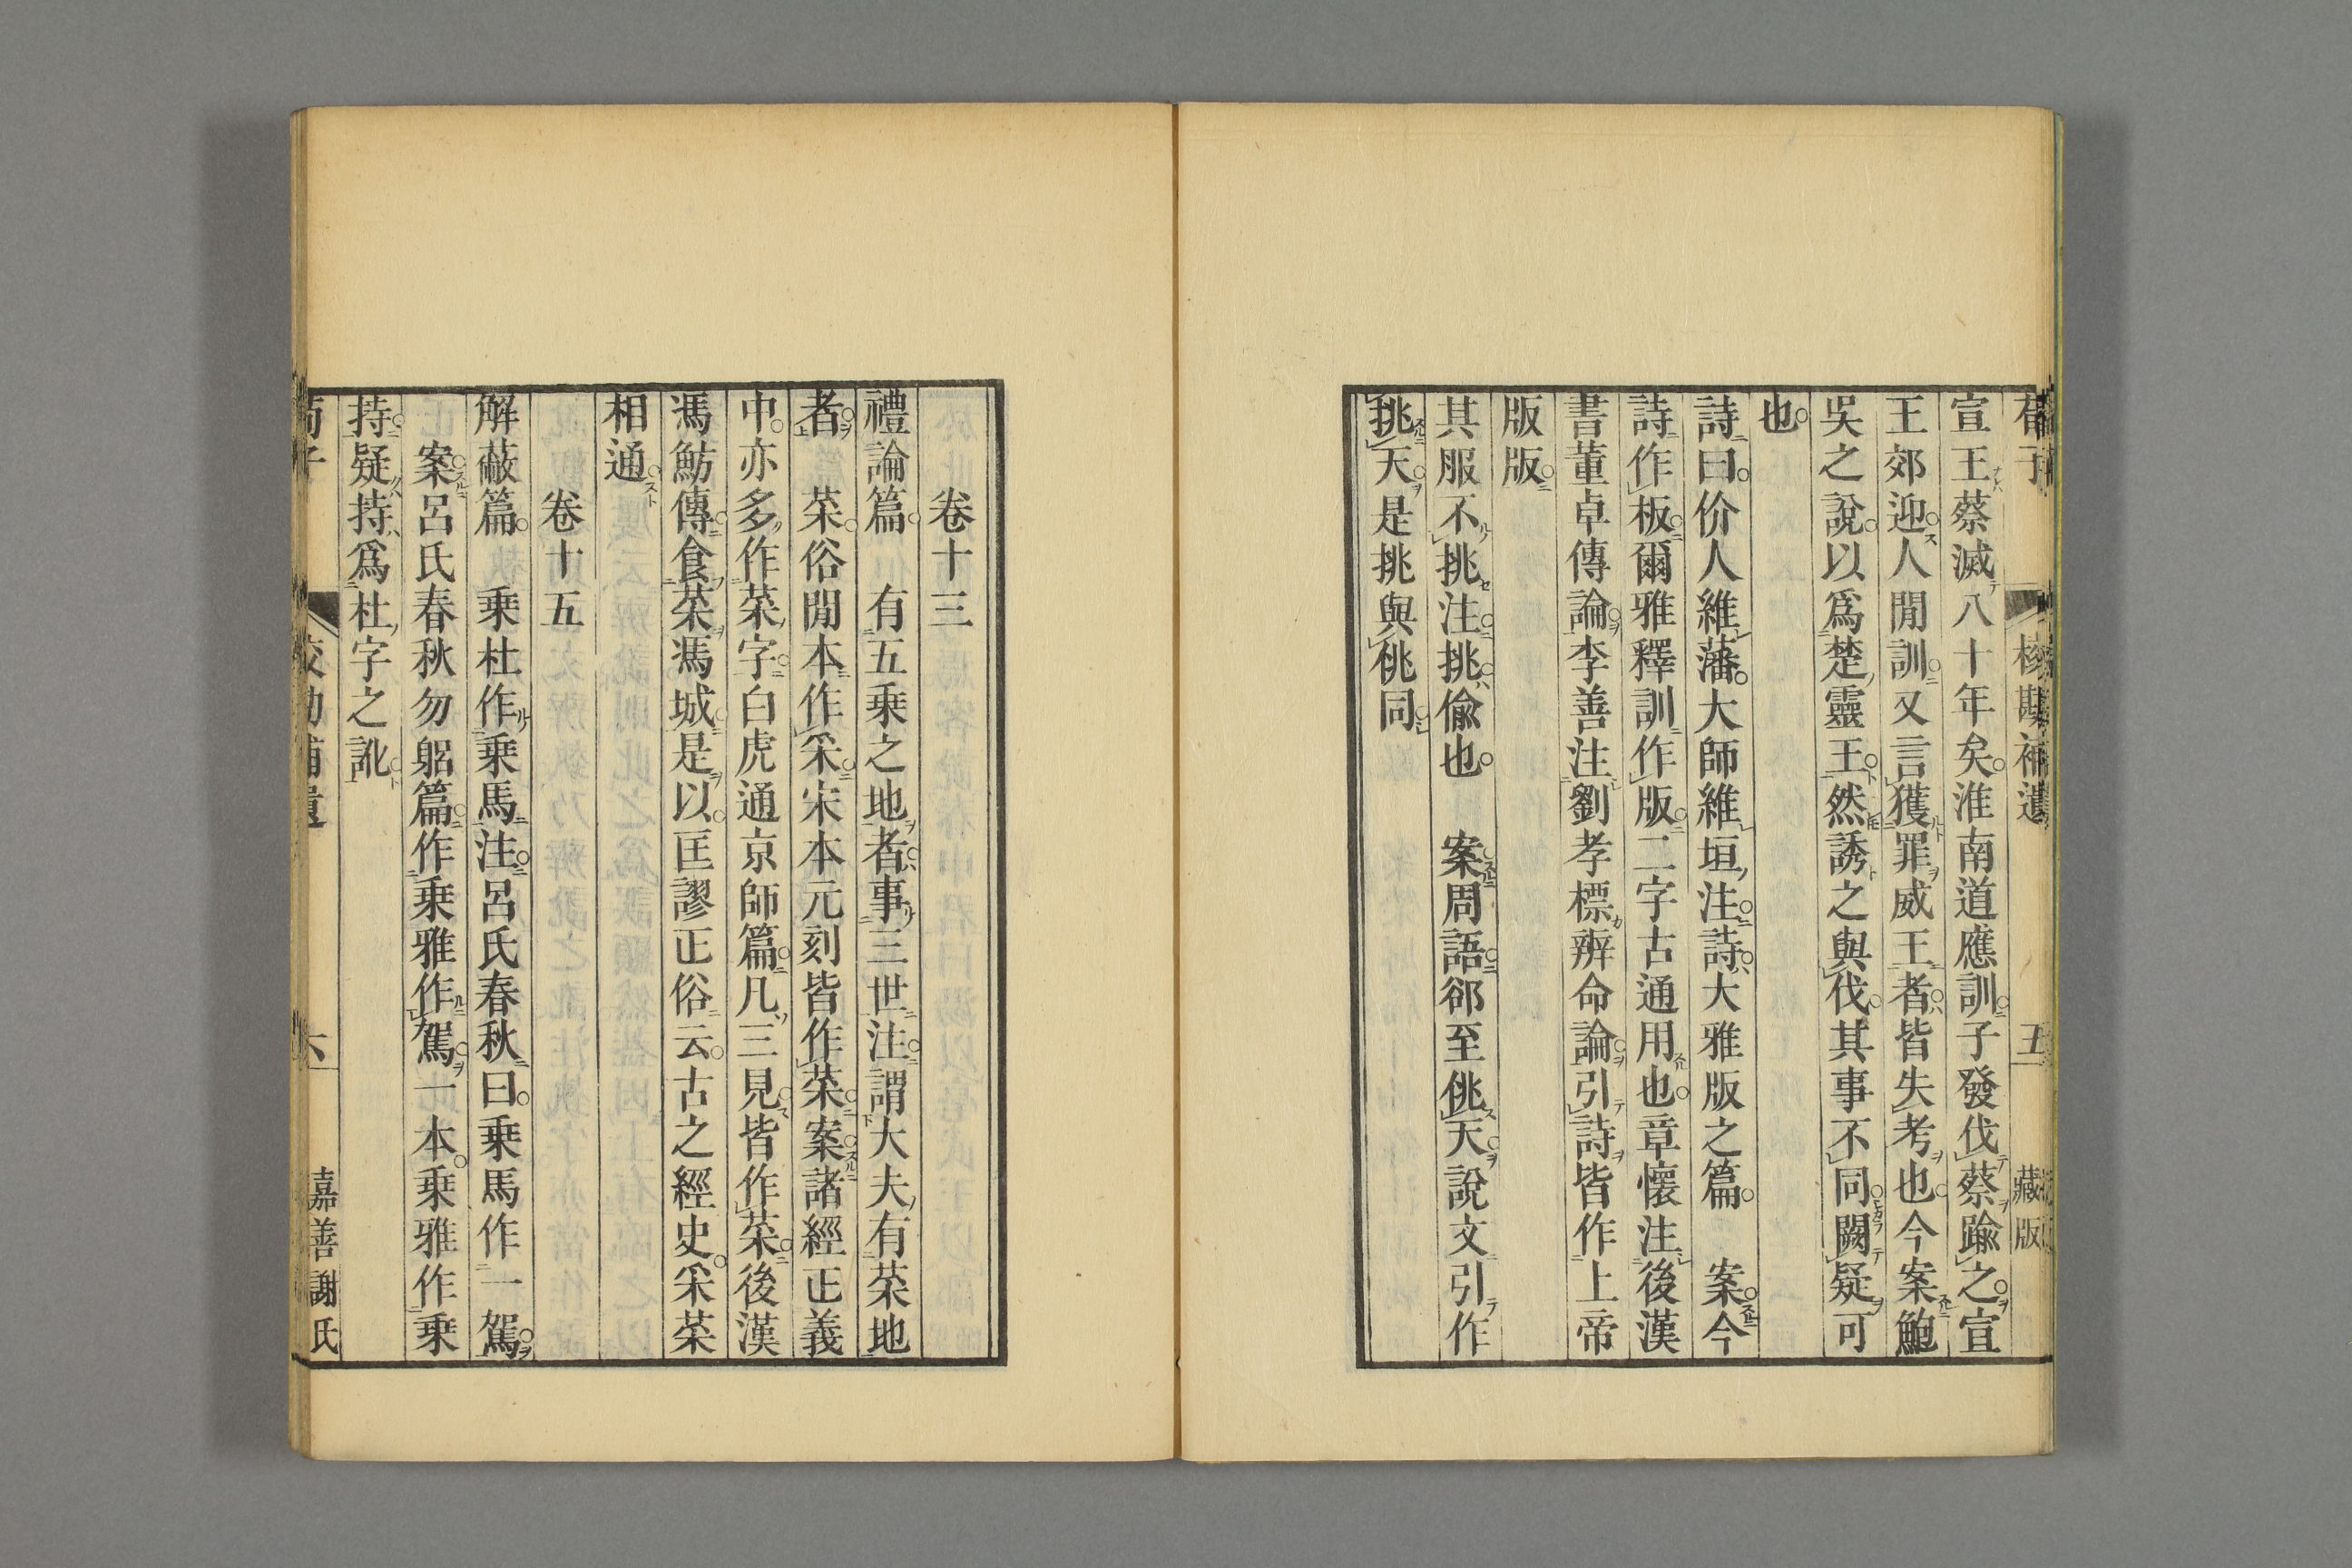 荀子 校勘補遺 五 藏版
宣王蔡滅八十年矣淮南道應訓子發伐蔡踰之宣
王郊迎人閒訓又言獲罪威王者皆失考也今案鮑
吳之說以爲楚靈王然誘之與伐其事不同闕疑可
也
詩曰价人維藩大師維垣注詩大雅版之篇 案今
詩作板爾雅釋訓作版二字古通用也章懷注後漢
書董卓傳論李善注劉孝標辨命論引詩皆作上帝
版版
其服不挑注挑偸也 案周語郤至佻天說文引作
挑天是挑與佻同
卷十三
禮論篇 有五乗之地者事三世注謂大夫有菜地
者 菜俗閒本作采宋本元刻皆作菜案諸經正義
中亦多作菜字白虎通京師篇凡三見皆作菜後漢
馮魴傳食菜馮城是以匡謬正俗云古之經史采菜
相通
卷十五
解蔽篇 乗杜作乗馬注呂氏春秋曰乗馬作一駕
案呂氏春秋勿躬篇作乗雅作駕一本乗雅作乗
持疑持爲杜字之訛
荀子 校勘補遺 六 嘉善謝氏